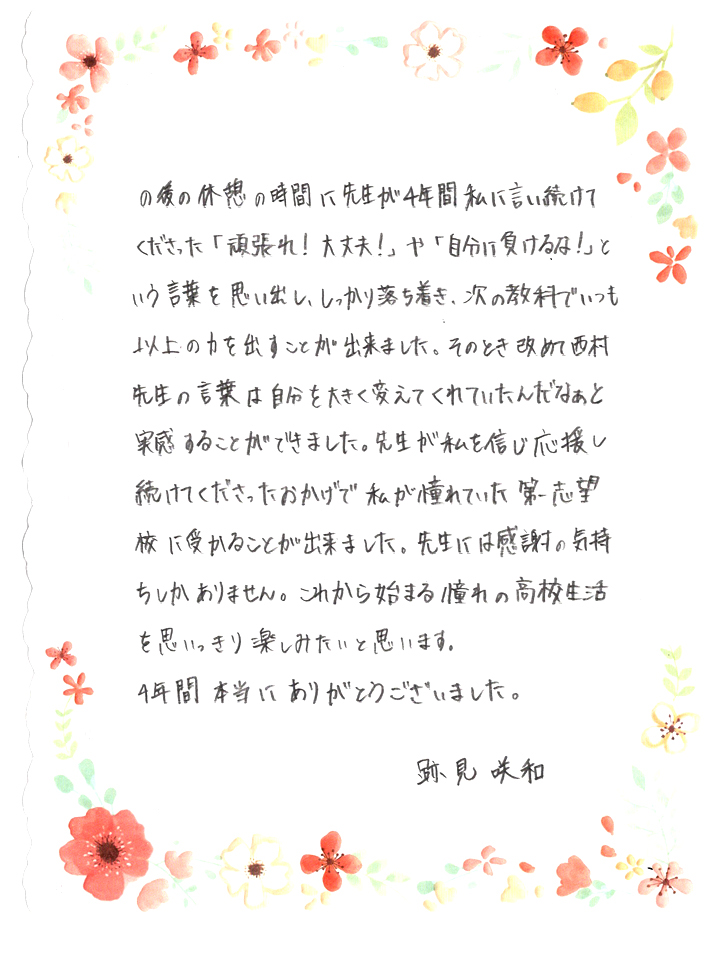 の後の休憩の時間に先生が4年間私に言い続けて
くださった「頑張れ！大丈夫！」や「自分に負けるな！」と
いう言葉を思い出し、しっかり落ち着き、次の教科でいつも
以上の力を出すことが出来ました。そのとき改めて西村
先生の言葉は自分を大きく変えてくれていたんだなぁと
実感することができました。先生が私を信じ応援し
続けてくださったおかげで私が憧れていた第一志望
校に受かることが出来ました。先生には感謝の気持
ちしかありません。これから始まる憧れの高校生活
を思いっきり楽しみたいと思います。
4年間本当にありがとうございました。
跡見 咲和